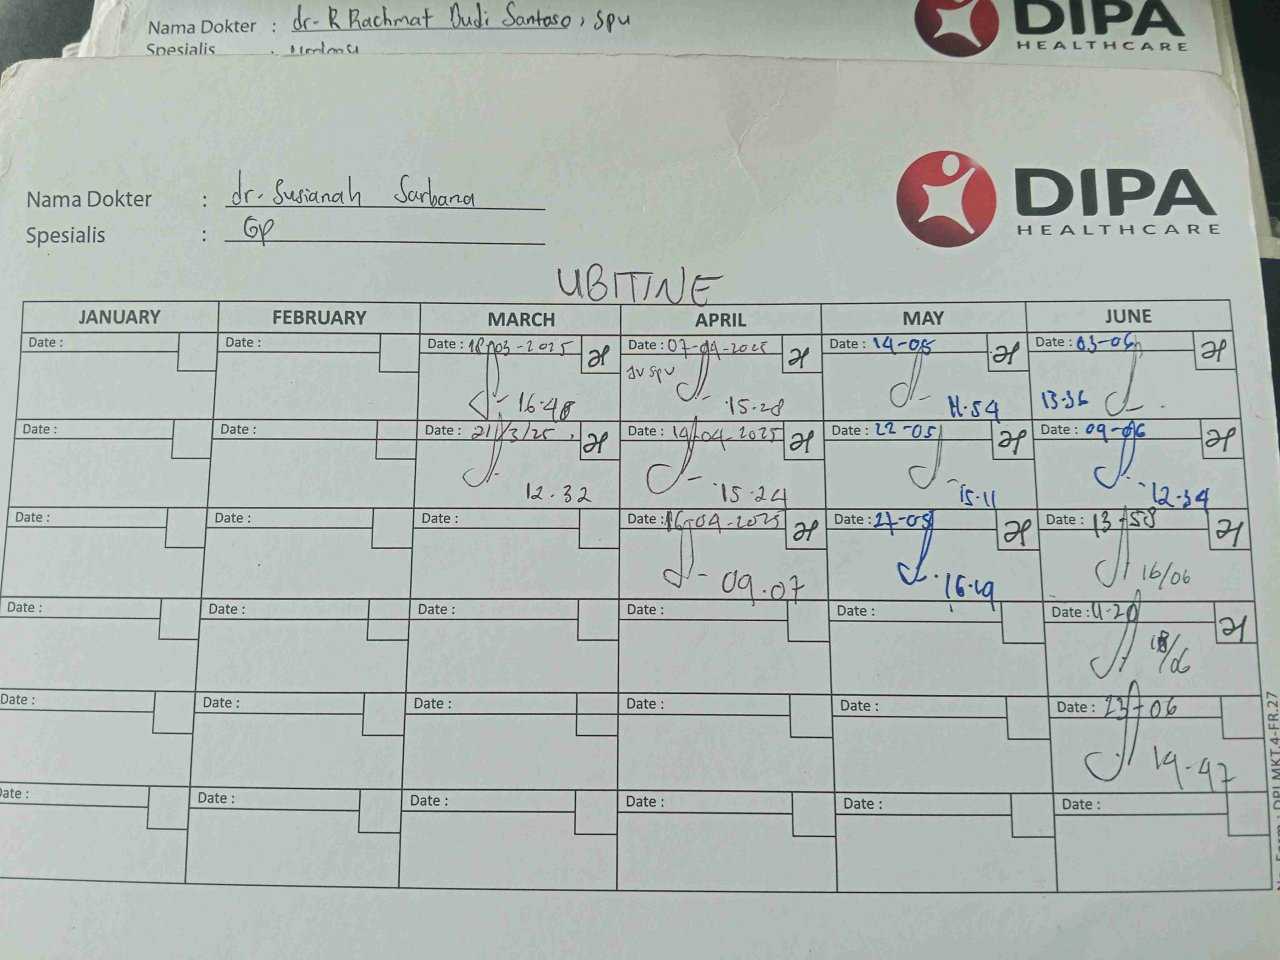 Nama Dokter : dr. R Rachmat Dudi Santoso, SpU
Spesialis :
DIPA
HEALTHCARE
Nama Dokter : dr. Susianah Sarbana
Spesialis : GP
DIPA
HEALTHCARE
UBITINE
JANUARY FEBRUARY MARCH APRIL MAY JUNE
Date : Date : Date : 18-03-2025 Date : 07-04-2025 Date : 14-05 Date : 03-06
JV SPV
16.48 15.28 11.54 13.36
Date : Date : Date : 21/3/25 Date : 14-04-2025 Date : 22-05 Date : 09-06
12.32 15.24 15.11 12.34
Date : Date : Date : Date : 16-04-2025 Date : 27-05 Date : 13-58
09.07 16.49 16/06
Date : Date : Date : Date : Date : Date : 11-20
18/06
Date : Date : Date : Date : Date : Date : 23-06
14-47
Date : Date : Date : Date : Date : Date :
DPI.MKT.4-FR.27